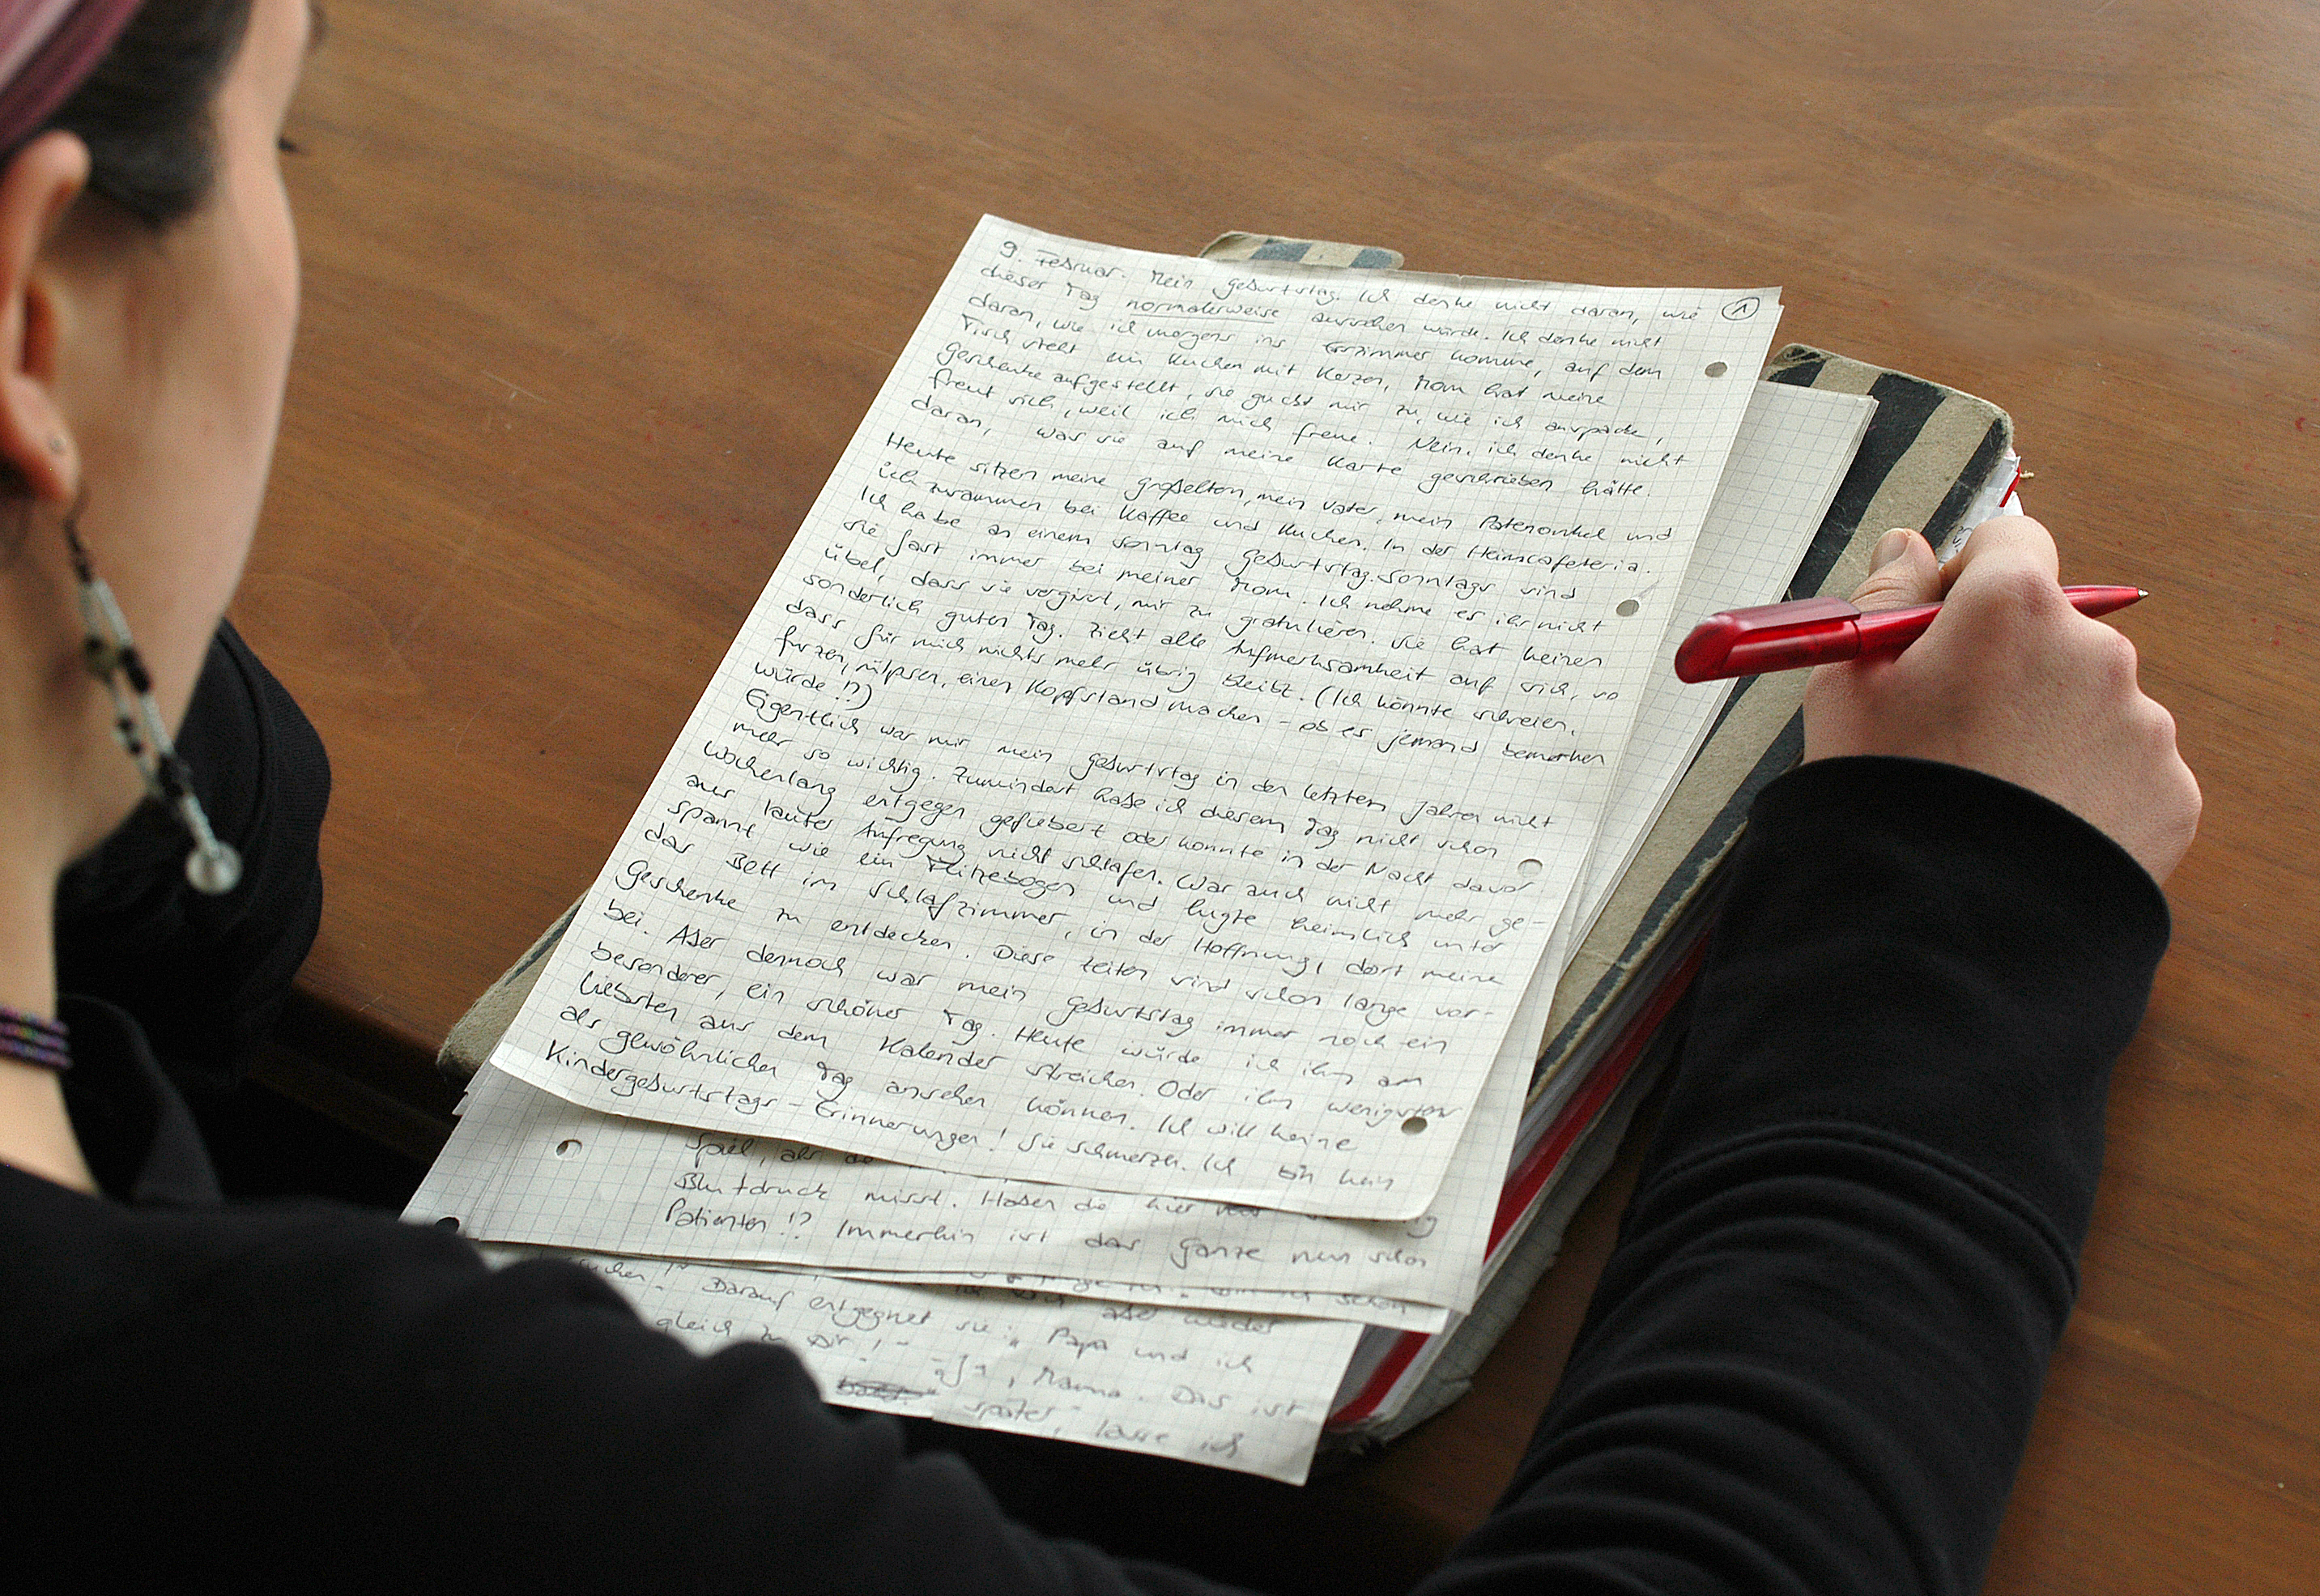 9. Februar. Mein Geburtstag. Ich denke nicht daran, wie
1
dieser Tag normalerweise aussehen würde. Ich denke nicht
daran, wie ich morgens ins Esszimmer komme, auf dem
Tisch steht ein Kuchen mit Kerzen, Mom hat meine
Geschenke aufgestellt, sie guckt mir zu, wie ich auspacke,
freut sich, weil ich mich freue. Nein, ich denke nicht
daran, was sie auf meine Karte geschrieben hätte.
Heute sitzen meine Großeltern, mein Vater, mein Patenonkel und
ich zusammen bei Kaffee und Kuchen. In der Heimcafeteria.
Ich habe an einem Sonntag Geburtstag. Sonntags sind
sie fast immer bei meiner Mom. Ich nehme es ihr nicht
übel, dass sie vergisst, mir zu gratulieren. Sie hat keinen
sonderlich guten Tag. Zieht alle Aufmerksamkeit auf sich, so
dass für mich nichts mehr übrig bleibt. (Ich könnte schreien,
furzen, rülpsen, einen Kopfstand machen - ob es jemand bemerken
würde!?)
Eigentlich war mir mein Geburtstag in den letzten Jahren nicht
mehr so wichtig. Zumindest habe ich diesem Tag nicht schon
wochenlang entgegen gefiebert oder konnte in der Nacht davor
aus lauter Aufregung nicht schlafen. War auch nicht mehr ge-
spannt wie ein Flitzebogen und lugte heimlich unter
das Bett im Schlafzimmer, in der Hoffnung, dort meine
Geschenke zu entdecken. Diese Zeiten sind schon lange vor-
bei. Aber dennoch war mein Geburtstag immer noch ein
besonderer, ein schöner Tag. Heute würde ich ihn am
liebsten aus dem Kalender streichen. Oder ihn wenigstens
als gewöhnlichen Tag ansehen können. Ich will keine
Kindergeburtstags-Erinnerungen! Sie schmerzen. Ich bin kein
Spiel, als
Blutdruck misst. Haben die hier
Patienten!? Immerhin ist das Ganze nun schon
schon
aber wieder
Darauf entgegnet sie: „Papa und ich
gleich zu Dir!"
Mama. Das ist
später, lasse ich